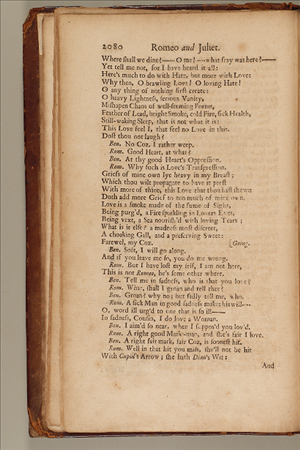 2080 Romeo and Juliet.
Where shall we dine?—— O me! —what fray was here?——
Yet tell me not, for I have heard it all:
Here's much to do with Hate, but more with Love:
Why then, O brawling Love! O loving Hate!
O any thing of nothing first create:
O heavy Lightness, serious Vanity,
Mishapen Chaos of well-seeming Forms,
Feather of Lead, bright Smoke, cold Fire, sick Health,
Still-waking Sleep, that is not what it is:
This Love feel I, that feel no Love in this.
Dost thou not laugh?
Ben. No Coz, I rather weep.
Rom. Good Heart, at what?
Ben. At thy good Heart's Oppression.
Rom. Why such is Love's Transgression.
Griefs of mine own lye heavy in my Breast;
Which thou wilt propagate to have it prest
With more of thine, this Love that thou hast shewn
Doth add more Grief to too much of mine own.
Love is a Smoke made of the fume of Sighs,
Being purg'd, a Fire sparkling in Lovers Eyes,
Being vext, a Sea nourish'd with loving Tears;
What is it else? a madness most discreet,
A choaking Gall, and a preserving Sweet:
Farewel, my Coz. [Going.
Ben. Soft, I will go along.
And if you leave me so, you do me wrong.
Rom. But I have lost my self, I am not here,
This is not Romeo, he's some other where.
Ben. Tell me in sadness, who is that you love?
Rom. What, shall I groan and tell thee?
Ben. Groan? why no; but sadly tell me, who.
Rom. A sick Man in good sadness makes his will——
O, word ill urg'd to one that is so ill——
In sadness, Cousin, I do love a Woman.
Ben. I aim'd so near, when I suppos'd you lov'd.
Rom. A right good Mark-man, and she's fair I love.
Ben. A right fair mark, fair Coz, is soonest hit.
Rom. Well in that hit you miss, she'll not be hit
With Cupid's Arrow; she hath Dian's Wit:
And